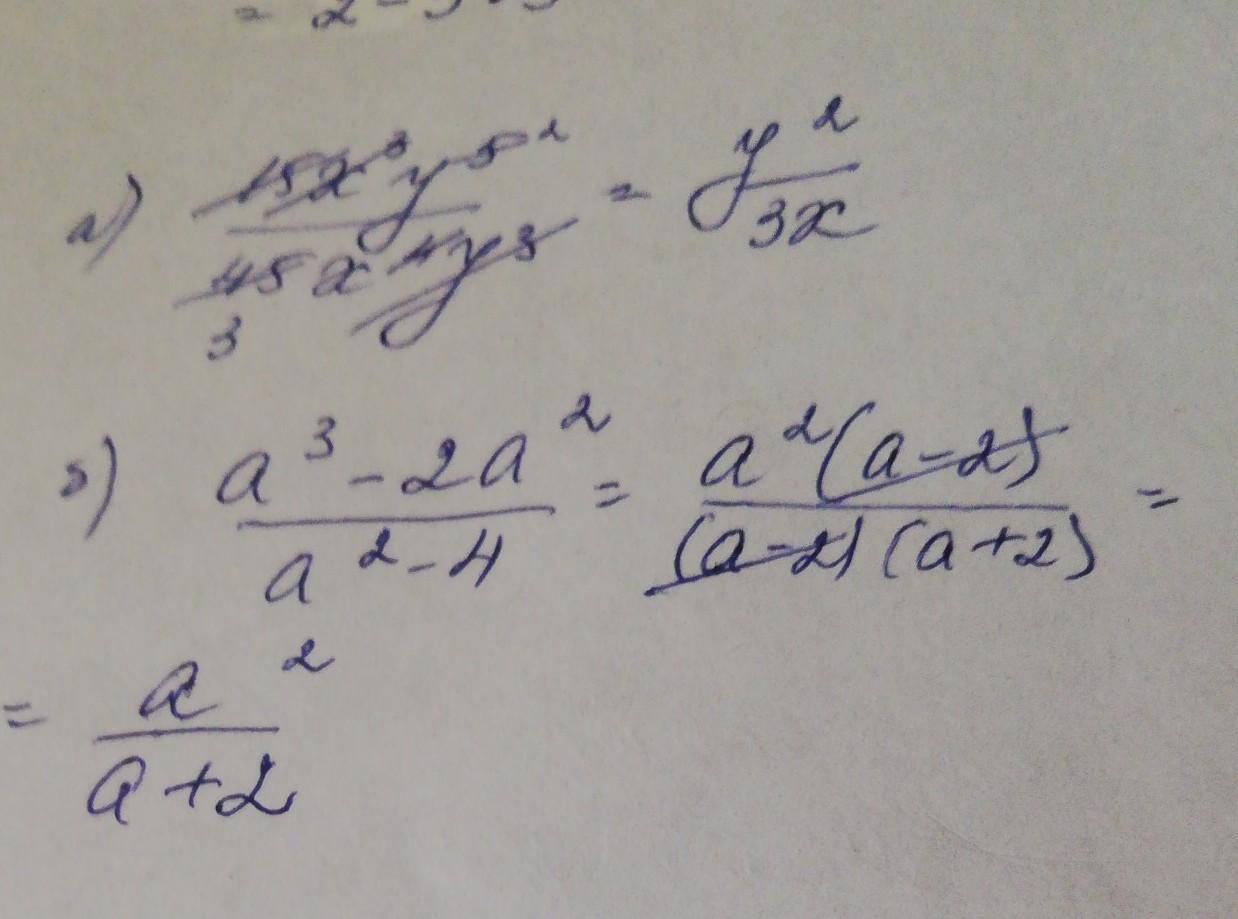 а) 15x³y⁵ ² / 45x⁴y³ 3 = y² / 3x
б) a³ - 2a² / a² - 4 = a²(a-2) / (a-2)(a+2) =
= a² / a+2